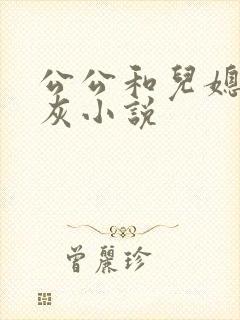 公公和兒媳
灰小説
曾麗珍